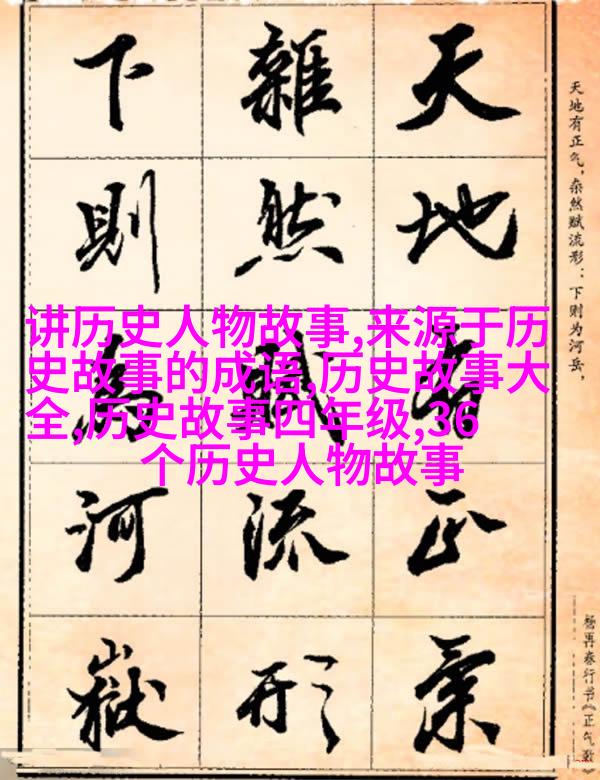 天地有正氣
雜然賦流形
下則為河嶽
天地有正气，杂然赋流形：下则为河岳，
杨再春行书《正气歌》
讲历史人物故事,来源于历
史故事的成语,历史故事大
全,历史故事四年级,36
个历史人物故事